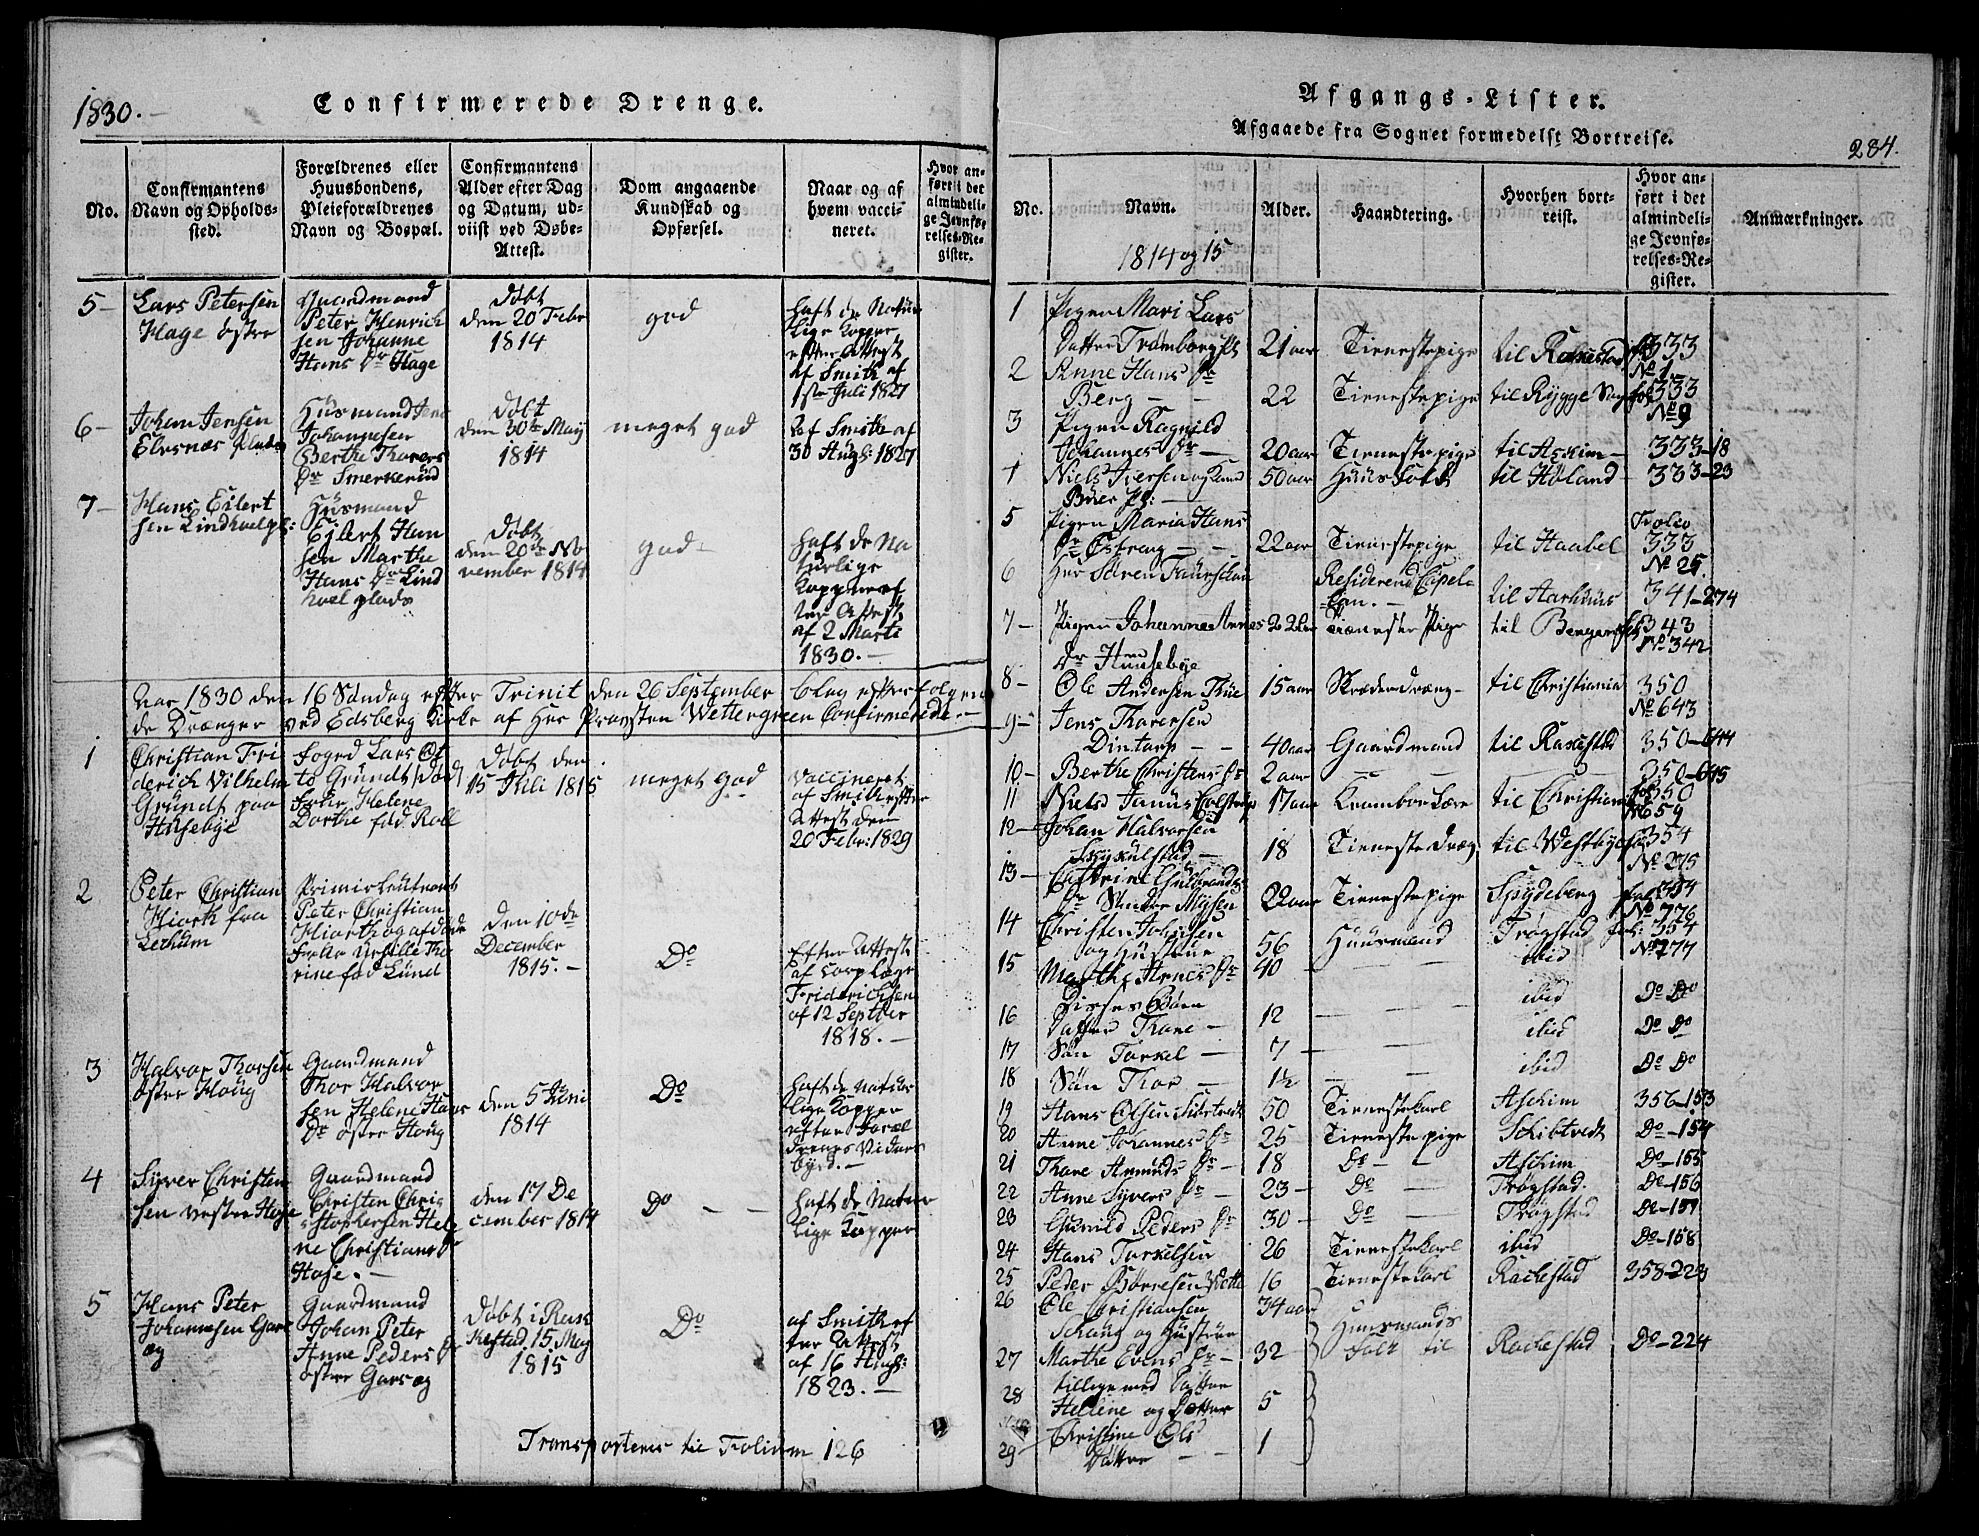 1830.
Confirmerede Drenge.
No.
Confirmantens Navn og Opholds-sted.
Forældrenes eller Huusbondens, Pleieforældrenes Navn og Bopæl.
Confirmantens Alder efter Dag og Datum, ud-viist ved Døbe-Attest.
Dom angaaende Kundskab og Opførsel.
Naar og af hvem vacci-neret.
Hvor an-ført i det almindeli-ge Jevnfø-relses-Re-gister.
5 Lars Petersen
Hage østre
Gaardmand
Peter Henrich
sen Johanne
Hans Dr Hage
Døbt
den 20 Febr
1814
god
haft de Natur
lige Kopper
efter Attest
af Smith af
1ste Juli 1827
6 Johan Jensen
Elvesnæs plads
Huusmand Jens
Johannesen
Berthe Thores
Dr Smerkerud
Døbt
den 30te Maj
1814
meget god
af Smith af
30 Aug: 1827
7 Hans Eilert
sen Lindhoel pl:
Huusmand
Eilert Han
sen Marthe
Hans Dr Lind
hoel plads
Døbt
den 20de No
vember 1814
god
haft de Na
turlige
Kopper ef
ter Attest
af 2 Marti
1830.
Aar 1830 den 16 Søndag efter Trinit den 26 September blev efterfølgen
de Drænger ved Edsberg Kirke af Her Provsten Wettergreen Confirmerede.
1 Christian Fri
derich Vilhelm
Grundt paa
Husebye
Foged Lars Ot
to Grundt Død
Frue Helene
Dorthe fød Roll
Døbt den
15 Juli 1815
meget god
Vaccineret
af Smith efter
Attest den
20 Febr: 1829
2 Peter Christian
Hiorth fra
Lekum
Primierleutnant
Peter Christian
Hiorth og afdøde
Frue
rine fød Lund
den 10de
December
1815.
Do
Efter Attest
af Corplæge
Friderichsen
af 12 Septbr
1818.
3 Halvor Thorsen
østre Houg
Gaardmand
Thor Halvor
sen Helene Hans
Dr østre Houg
den 5 Juni
1814
Do
haft de Natur
lige Kopper
efter Foræl
drenes Vidnes
byrd.
4 Syver Christen
sen vestre Hase
Gaardmand
Christen Chris
stophersen Hele
ne Christians Dr
Hase.
den 17 De
cember 1814
Do
haft de Natur
lige Kopper
5 Hans Peter
Johannesen Gars
eg
Gaardmand
Johan Peter
Anne Peders Dr
østre Garseg
Døbt i Rak
kestad 15 Maj
1815
Do
af Smith ef
ter Attest
af 16 Aug:
1823.
Transporteres til Folium 126
Afgangs-Lister.
Afgaaede fra Sognet formedelst Bortreise.
284.
No.
Navn.
Alder.
Haandtering.
Hvorhen bort-reist.
Hvor an-ført i det almindeli-ge Jevnfø-relses-Re-gister.
Anmærkninger.
1814 og 15
1 Pigen Mari Lars
Datter Tromborg 21 aar Tienestepige til Rakkestad 333
No 1
2 Anne Hans Dr
Berg 22 Tienestepige til Rygge Sogn 333
No 9
3 Pigen Ragnild
Johannes Dr 20 aar Tienestepige til Askim 333-18
Niels Iversen og Kone 50 aar Huusfolk til Høland 333-23
5 Pigen Maria Hans
Dr Østreng 22 aar Tienestepige til Haabel Folio 333
No 25
6 Her Søren Residerend Capel-
lan. til Aarhuus 341-274
7 Pigen Johanne Arnes 22 aar Tieneste Pige til 343
No 342
Dr Huusebye
8 Ole Andersen 15 aar Skræderdræng til Christiania 350
No 643
9 Jens Thoresen
Dintorp 40 aar Gaardmand til Rakestad 350-644
10 Berthe Christens Dr 2 aar 350-645
11 Niels Janus 17 aar til Christiania 350
No 659
12 Johan Halvorsen
18 Tienestedræng til Westbye 354
No 275
13 Cathrine Gulbrands
Dr Søndre Mysen 22 aar Tienestepige Spydeberg fol 354
No 276
14 Christen Johnsen 56 Huusmand Trøgstad fol: 354
No 277
og Hustrue
15 Marthe Arnes Dr 40 ibid
Disses Børn
16 Datter Thore 12 ibid Do Do
17 Søn Torkel 7 ibid Do Do
18 Søn Thor 1½ ibid Do Do
19 Hans Olsen 50 Tienestekarl Aschim 356-153
20 Anne Johannes Dr 25 Tienestepige Schibtvedt Do-154
21 Thore Amunds Dr 18 Do Aschim Do-155
22 Anne Syvers Dr 23 Do Trøgstad. Do-156
23 Gunild Peders Dr 30 Do Trøgstad Do-157
24 Hans Torkelsen 26 Tienestekarl ibid Do-158
25 Peder Børresen 16 Tienestekarl Rachestad 358-223
26 Ole Christiansen 34 aar
Schaug og Hustrue
27 Marthe Evens Dr 32 Huusmands
Folk til Rachestad Do-224
28 tillige med Datter
Helene og Datter 5
29 Christine Ols
Datter 1